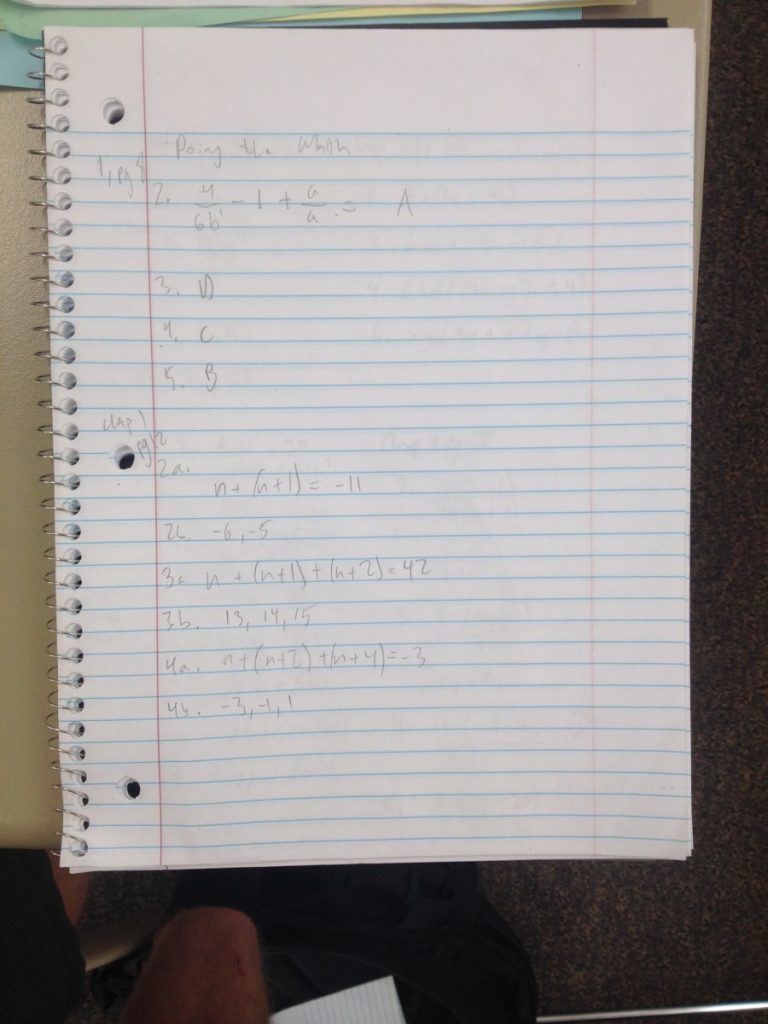 Doing the Math
1, pg 8
2. 4/6b - 1 + a/a = A
3. D
4. C
5. B
chap 1
pg 12
2a.
n + (n+1) = -11
2b. -6, -5
3a n + (n+1) + (n+2) = 42
3b. 13, 14, 15
4a. n + (n+2) + (n+4) = -3
4b. -3, -1, 1